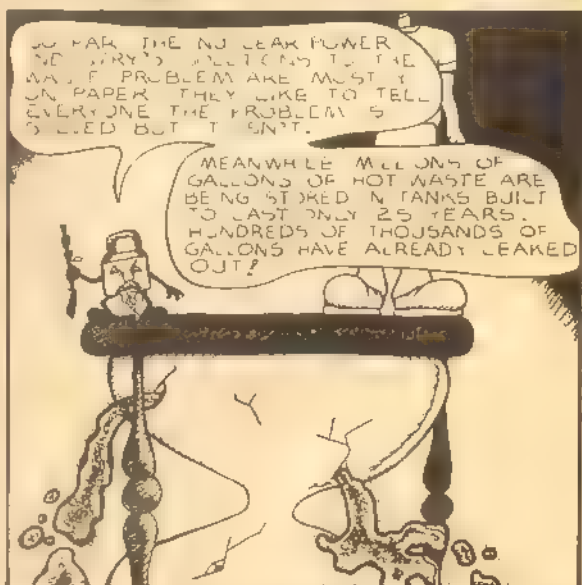 SO FAR THE NUCLEAR POWER
INDUSTRY'S SOLUTIONS TO THE
WASTE PROBLEM ARE MOSTLY
ON PAPER. THEY LIKE TO TELL
EVERYONE THE PROBLEM IS
SOLVED BUT IT ISN'T.
MEANWHILE MILLIONS OF
GALLONS OF HOT WASTE ARE
BEING STORED IN TANKS BUILT
TO LAST ONLY 25 YEARS.
HUNDREDS OF THOUSANDS OF
GALLONS HAVE ALREADY LEAKED
OUT!